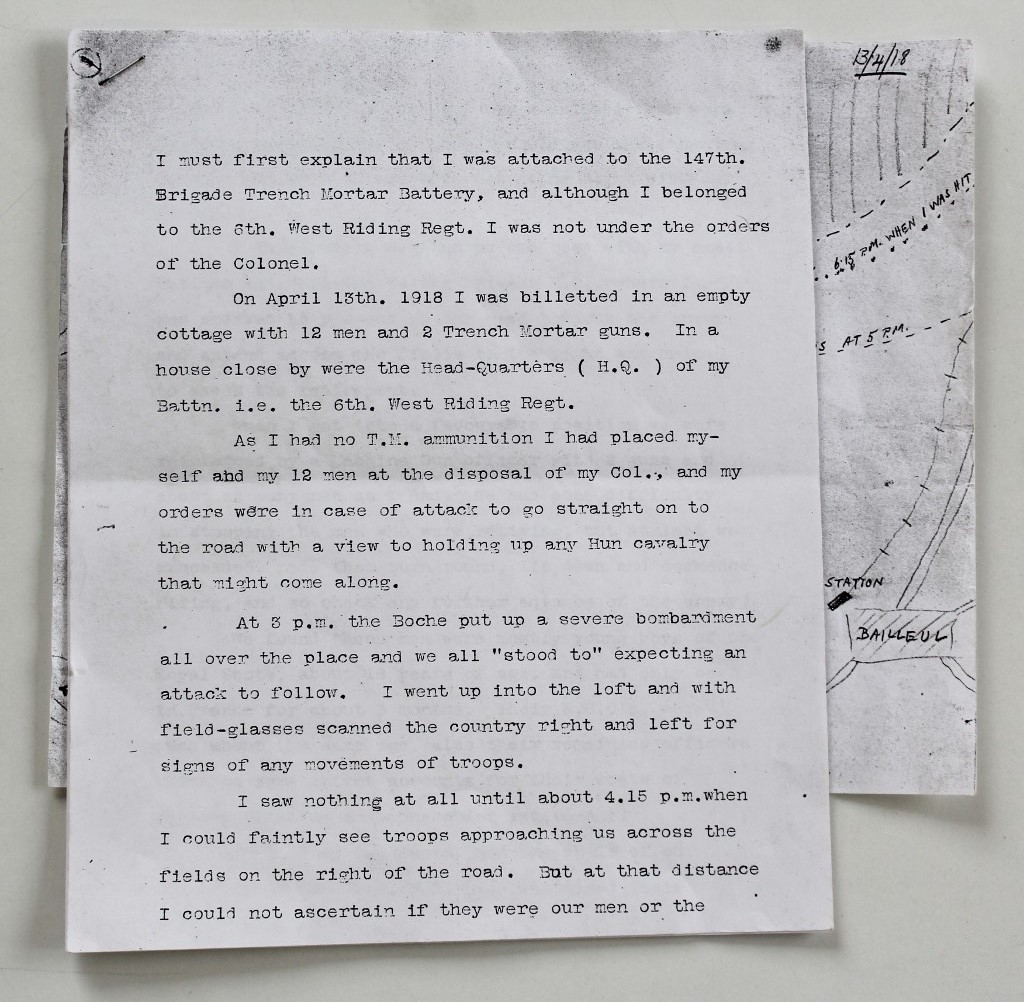 I must first explain that I was attached to the 147th.
Brigade Trench Mortar Battery, and although I belonged
to the 6th. West Riding Regt. I was not under the orders
of the Colonel.
On April 13th. 1918 I was billetted in an empty
cottage with 12 men and 2 Trench Mortar guns.  In a
house close by were the Head-Quarters ( H.Q. ) of my
Battn. i.e. the 6th. West Riding Regt.
As I had no T.M. ammunition I had placed my-
self and my 12 men at the disposal of my Col., and my
orders were in case of attack to go straight on to
the road with a view to holding up any Hun cavalry
that might come along.
At 3 p.m. the Boche put up a severe bombardment
all over the place and we all "stood to" expecting an
attack to follow.   I went up into the loft and with
field-glasses scanned the country right and left for
signs of any movements of troops.
I saw nothing at all until about 4.15 p.m.when
I could faintly see troops approaching us across the
fields on the right of the road.  But at that distance
I could not ascertain if they were our men or the
13/4/18
6.15 P.M. WHEN I WAS HIT
S AT 5 P.M.
STATION
BAILLEUL